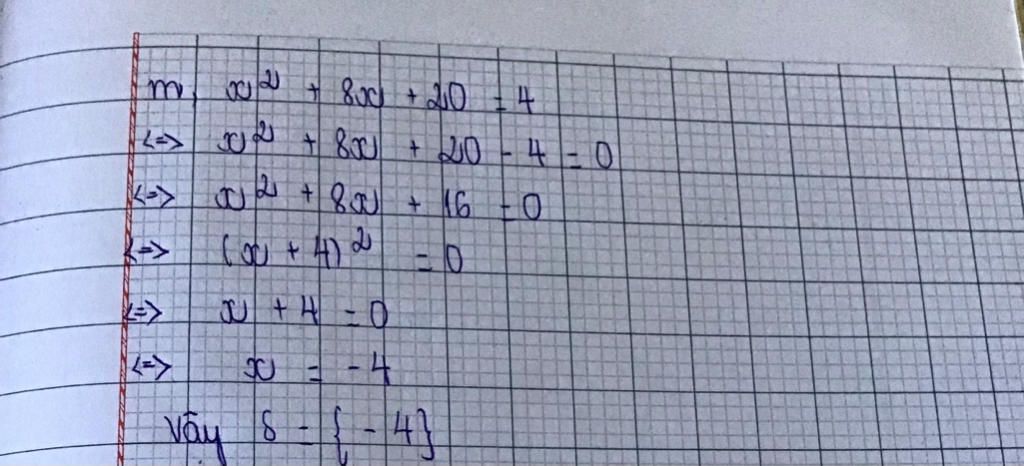 m, x² + 8x + 20 = 4
<=> x² + 8x + 20 - 4 = 0
<=> x² + 8x + 16 = 0
<=> (x + 4)² = 0
<=> x + 4 = 0
<=> x = - 4
Vậy S = { - 4}